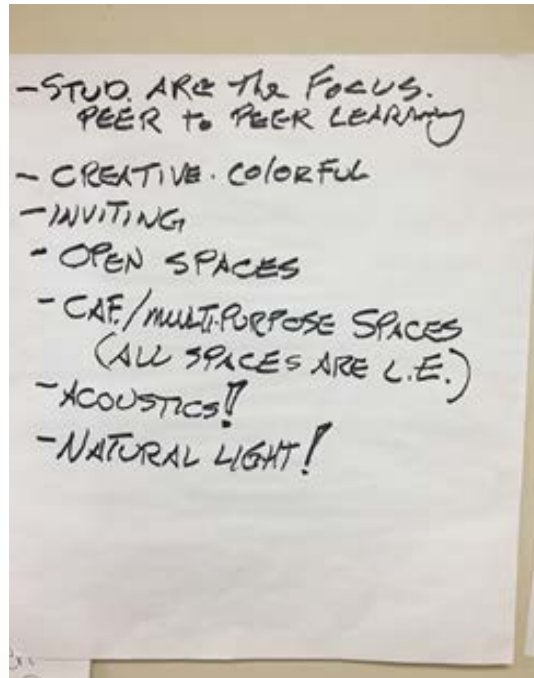 - STUD. ARE The FOCUS.
PEER to PEER LEARNING
- CREATIVE. COlORFUL
- INVITING
- OPEN SPACES
- CAF./MULTI-PURPOSE SPACES
(ALL SPACES ARE L.E.)
- ACOUSTICS!!
- NATURAL LIGHT!